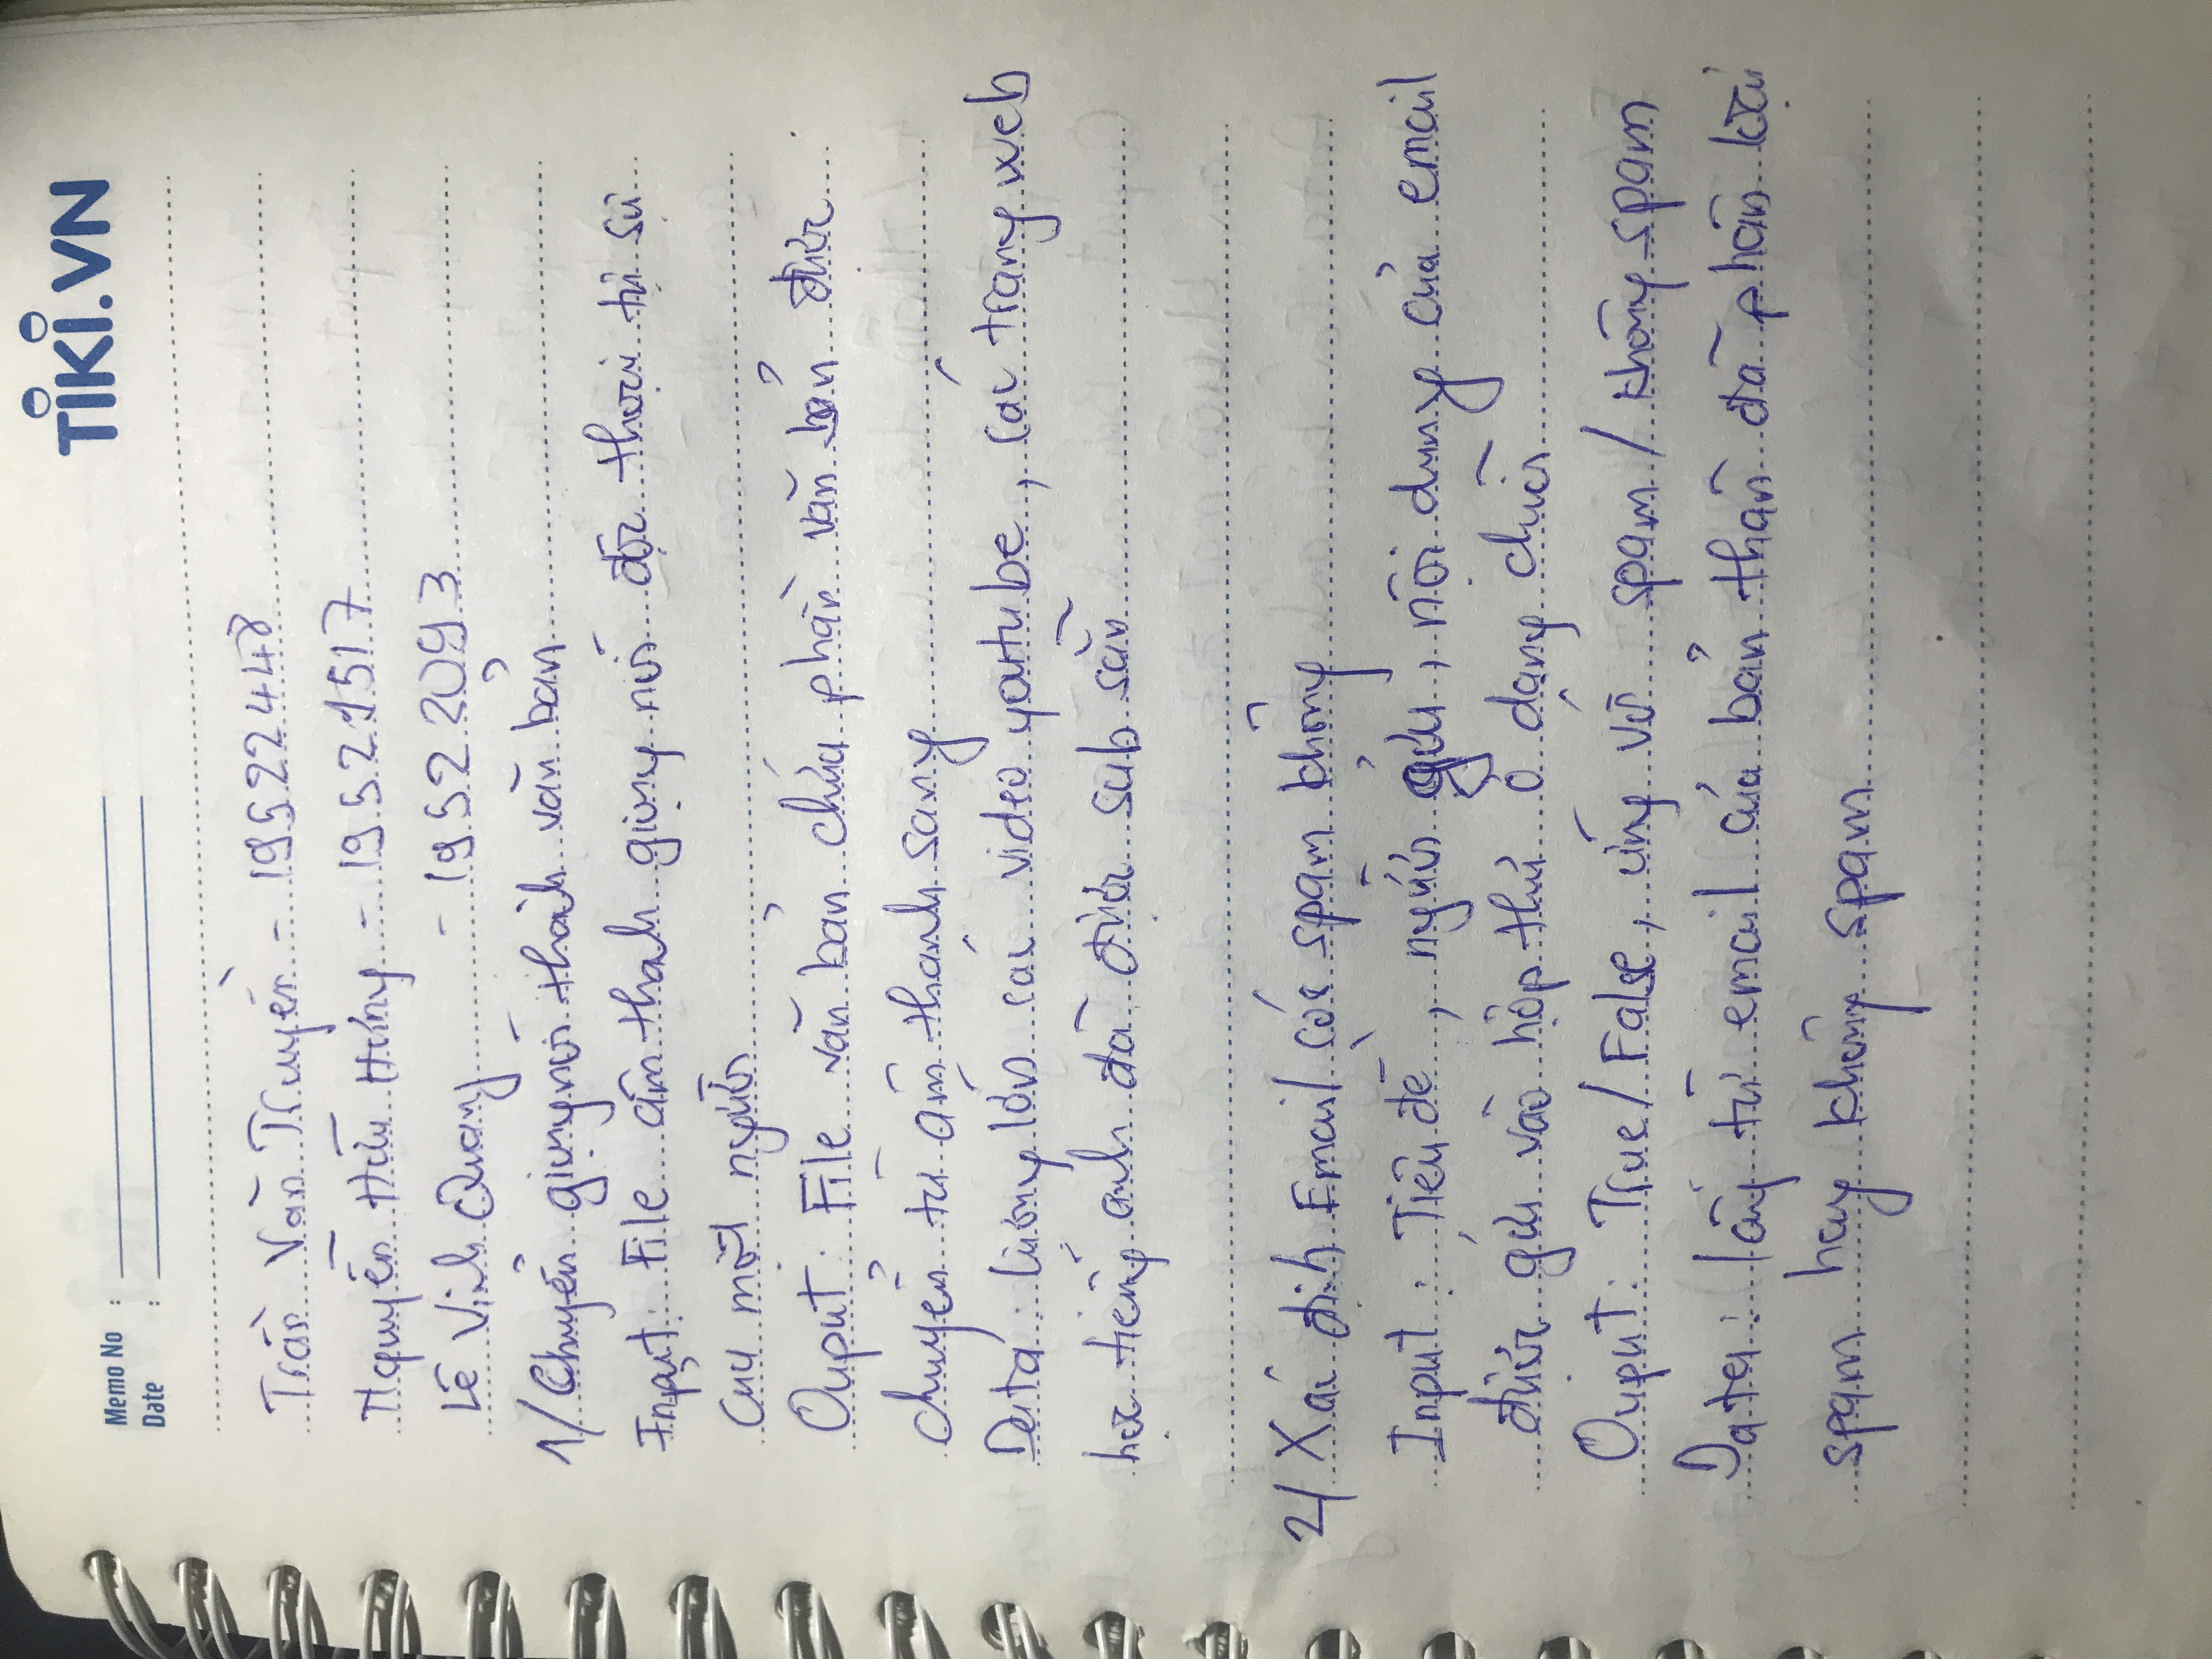 TiKi.VN
Memo No :
Date :
Trần Văn Truyền - 19522448
Nguyễn Hữu Hưng - 19521517
Lê Vinh Quang - 19522093
1/ Chuyển giọng nói thành văn bản
Input: File âm thanh giọng nói độc thoại tự sự
của một người
Ouput: File văn bản chứa phần văn bản được
chuyển từ âm thanh sang
Data: lượng lớn các video youtube, các trang web
học tiếng anh đã được sub sẵn
2/ Xác định Email có spam không
Input: Tiêu đề, người gửi, nội dung của email
được gửi vào hộp thư ở dạng chuỗi
Ouput: True/False, ứng với spam/không spam
Data: lấy từ email của bản thân đã phân loại
spam hay không spam